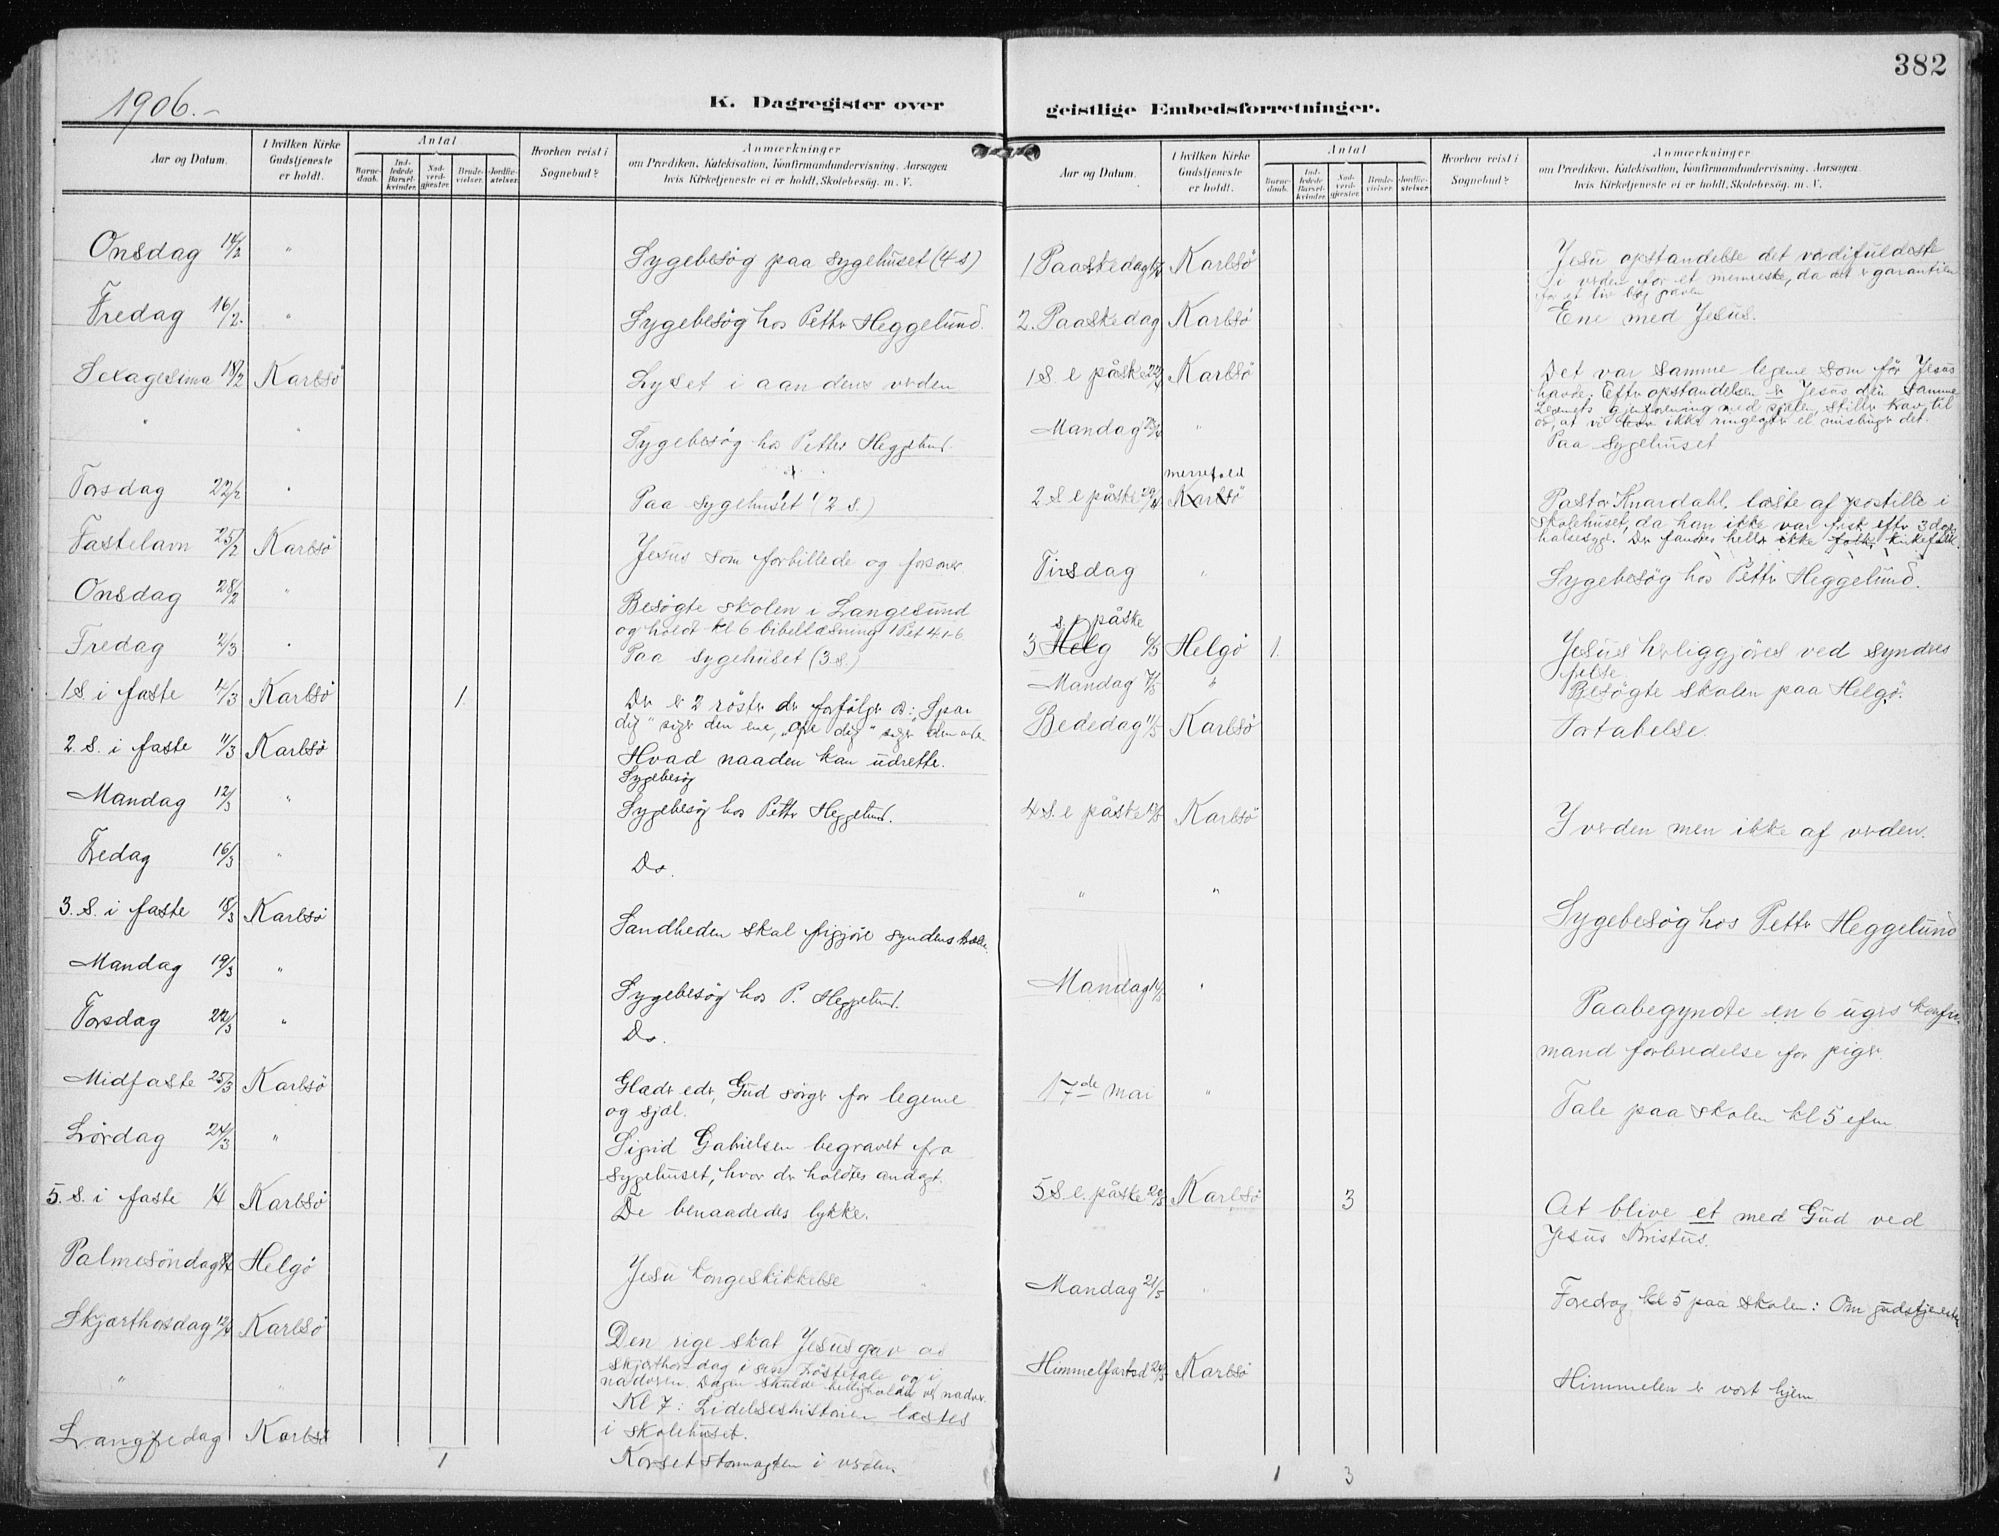 382
1906.
K. Dagregister over
geistlige Embedsforretninger.
Aar og Datum.
I hvilken Kirke Gudstjeneste er holdt.
Antal
Barnedaab.
Indledede Barselkvinder.
Nadverdgjester.
Brudevielser.
Jordfæstelser.
Hvorhen reist i Sognebud?
Anmærkninger
om Prædiken, Katekisation, Konfirmandundervisning, Aarsagen
hvis Kirketjeneste ei er holdt, Skolebesög. m. V.
Onsdag 14/2 " Sygebesøg paa sygehuset (4 s)
Fredag 16/2. " Sygebesøg hos Petter Heggelund.
Sexagesima 18/2 Karlsö Lyset i aandens verden
" " Sygebesøg hos Petter Heggelund.
Torsdag 22/2 " Paa sygehuset (2 s.)
Fastelavn 25/2 Karlsö Jesus som forbillede og forsoner.
Onsdag 28/2 " Besøgte skolen i Langesund
og holdt kl 6 bibellæsning 1 Pet 4 1-6
Fredag 2/3 " Paa sygehuset (3 s.)
1 S. i faste 4/3 Karlsö 1. Der er 2 röster der forfölger os: "Spar
dig" siger den ene, "Ofre dig" siger den anden
2. S. i faste 11/3 Karlsö Hvad naaden kan udrette.
Sygebesøg
Mandag 12/3 " Sygebesøg hos Petter Heggelund.
Fredag 16/3 " Do.
3. S. i faste 18/3 Karlsö Sandheden skal frigjöre syndens træle.
Mandag 19/3 " Sygebesøg hos P. Heggelund.
Torsdag 22/3 " Do.
Midfaste 25/3 Karlsö Glæder eder, Gud sörger for legeme
og sjæl.
Lördag 24/3 " Sigrid Gabrielsen begravet fra
sygehuset, hvor der holdtes andagt.
5. S. i faste 1/4 Karlsö De benaadedes lykke.
Palmesöndag 8/4 Helgö Jesu kongeskikkelse
Skjærthorsdag 12/4 Karlsö Den rige skat Jesus gav os
skjærthorsdag i sin trøstetale og i
nadveren. Dagen skulde helligholdes ved nadver.
" " Kl 7: Lidelseshistorien læstes
i skolehuset.
Langfredag Karlsö Korset stormagten i verden.
1
Aar og Datum.
I hvilken Kirke Gudstjeneste er holdt.
Antal
Barnedaab.
Indledede Barselkvinder.
Nadverdgjester.
Brudevielser.
Jordfæstelser.
Hvorhen reist i Sognebud?
Anmærkninger
om Prædiken, Katekisation, Konfirmandundervisning, Aarsagen
hvis Kirketjeneste ei er holdt, Skolebesög. m. V.
1 Paaskedag 15/4 Karlsö Jesu opstandelse det værdifuldeste
i verden for et menneske, da det er garantien
for et liv bag graven
2. Paaskedag Karlsö Ene med Jesus.
1 S. e påske 22/4 Karlsö Det var samme legeme som før Jesus
havde. Efter opstandelsen er Jesus den samme
Legemets gjenforening med sjælen, stiller krav til
os, at vi ikke ringeagter el misbruger det.
Mandag 23/4 " Paa sygehuset
messefald
2 S e påske 29/4 Karlsö Pastor Knardahl læste af postille i
skolehuset, da han ikke var frisk efter 3 dages
halsesyge. Der fandtes heller ikke folk kirkefolk.
Tirsdag " Sygebesøg hos Petter Heggelund.
s. e påske
3 Helg 6/5 Helgö 1. Jesus herliggjöres ved synderes
frelse.
Mandag 7/5 " Besøgte skolen paa Helgö.
Bededag 11/5 Karlsö Fortabelse.
4 S. e påske 13/5 Karlsö I verden men ikke af verden.
" " Sygebesøg hos Petter Heggelund
Mandag 14/5 " Paabegyndte en 6 ugers konfir
mand forberedelse for piger.
17de mai " Tale paa skolen kl 5 efm
5 S. e. påske 20/5 Karlsö 3 At blive et med Gud ved
Jesus Kristus.
Mandag 21/5 " Foredrag kl 5 paa skolen: Om gudstjenesten
Himmelfartsd 24/5 Karlsö Himmelen er vort hjem
1 3